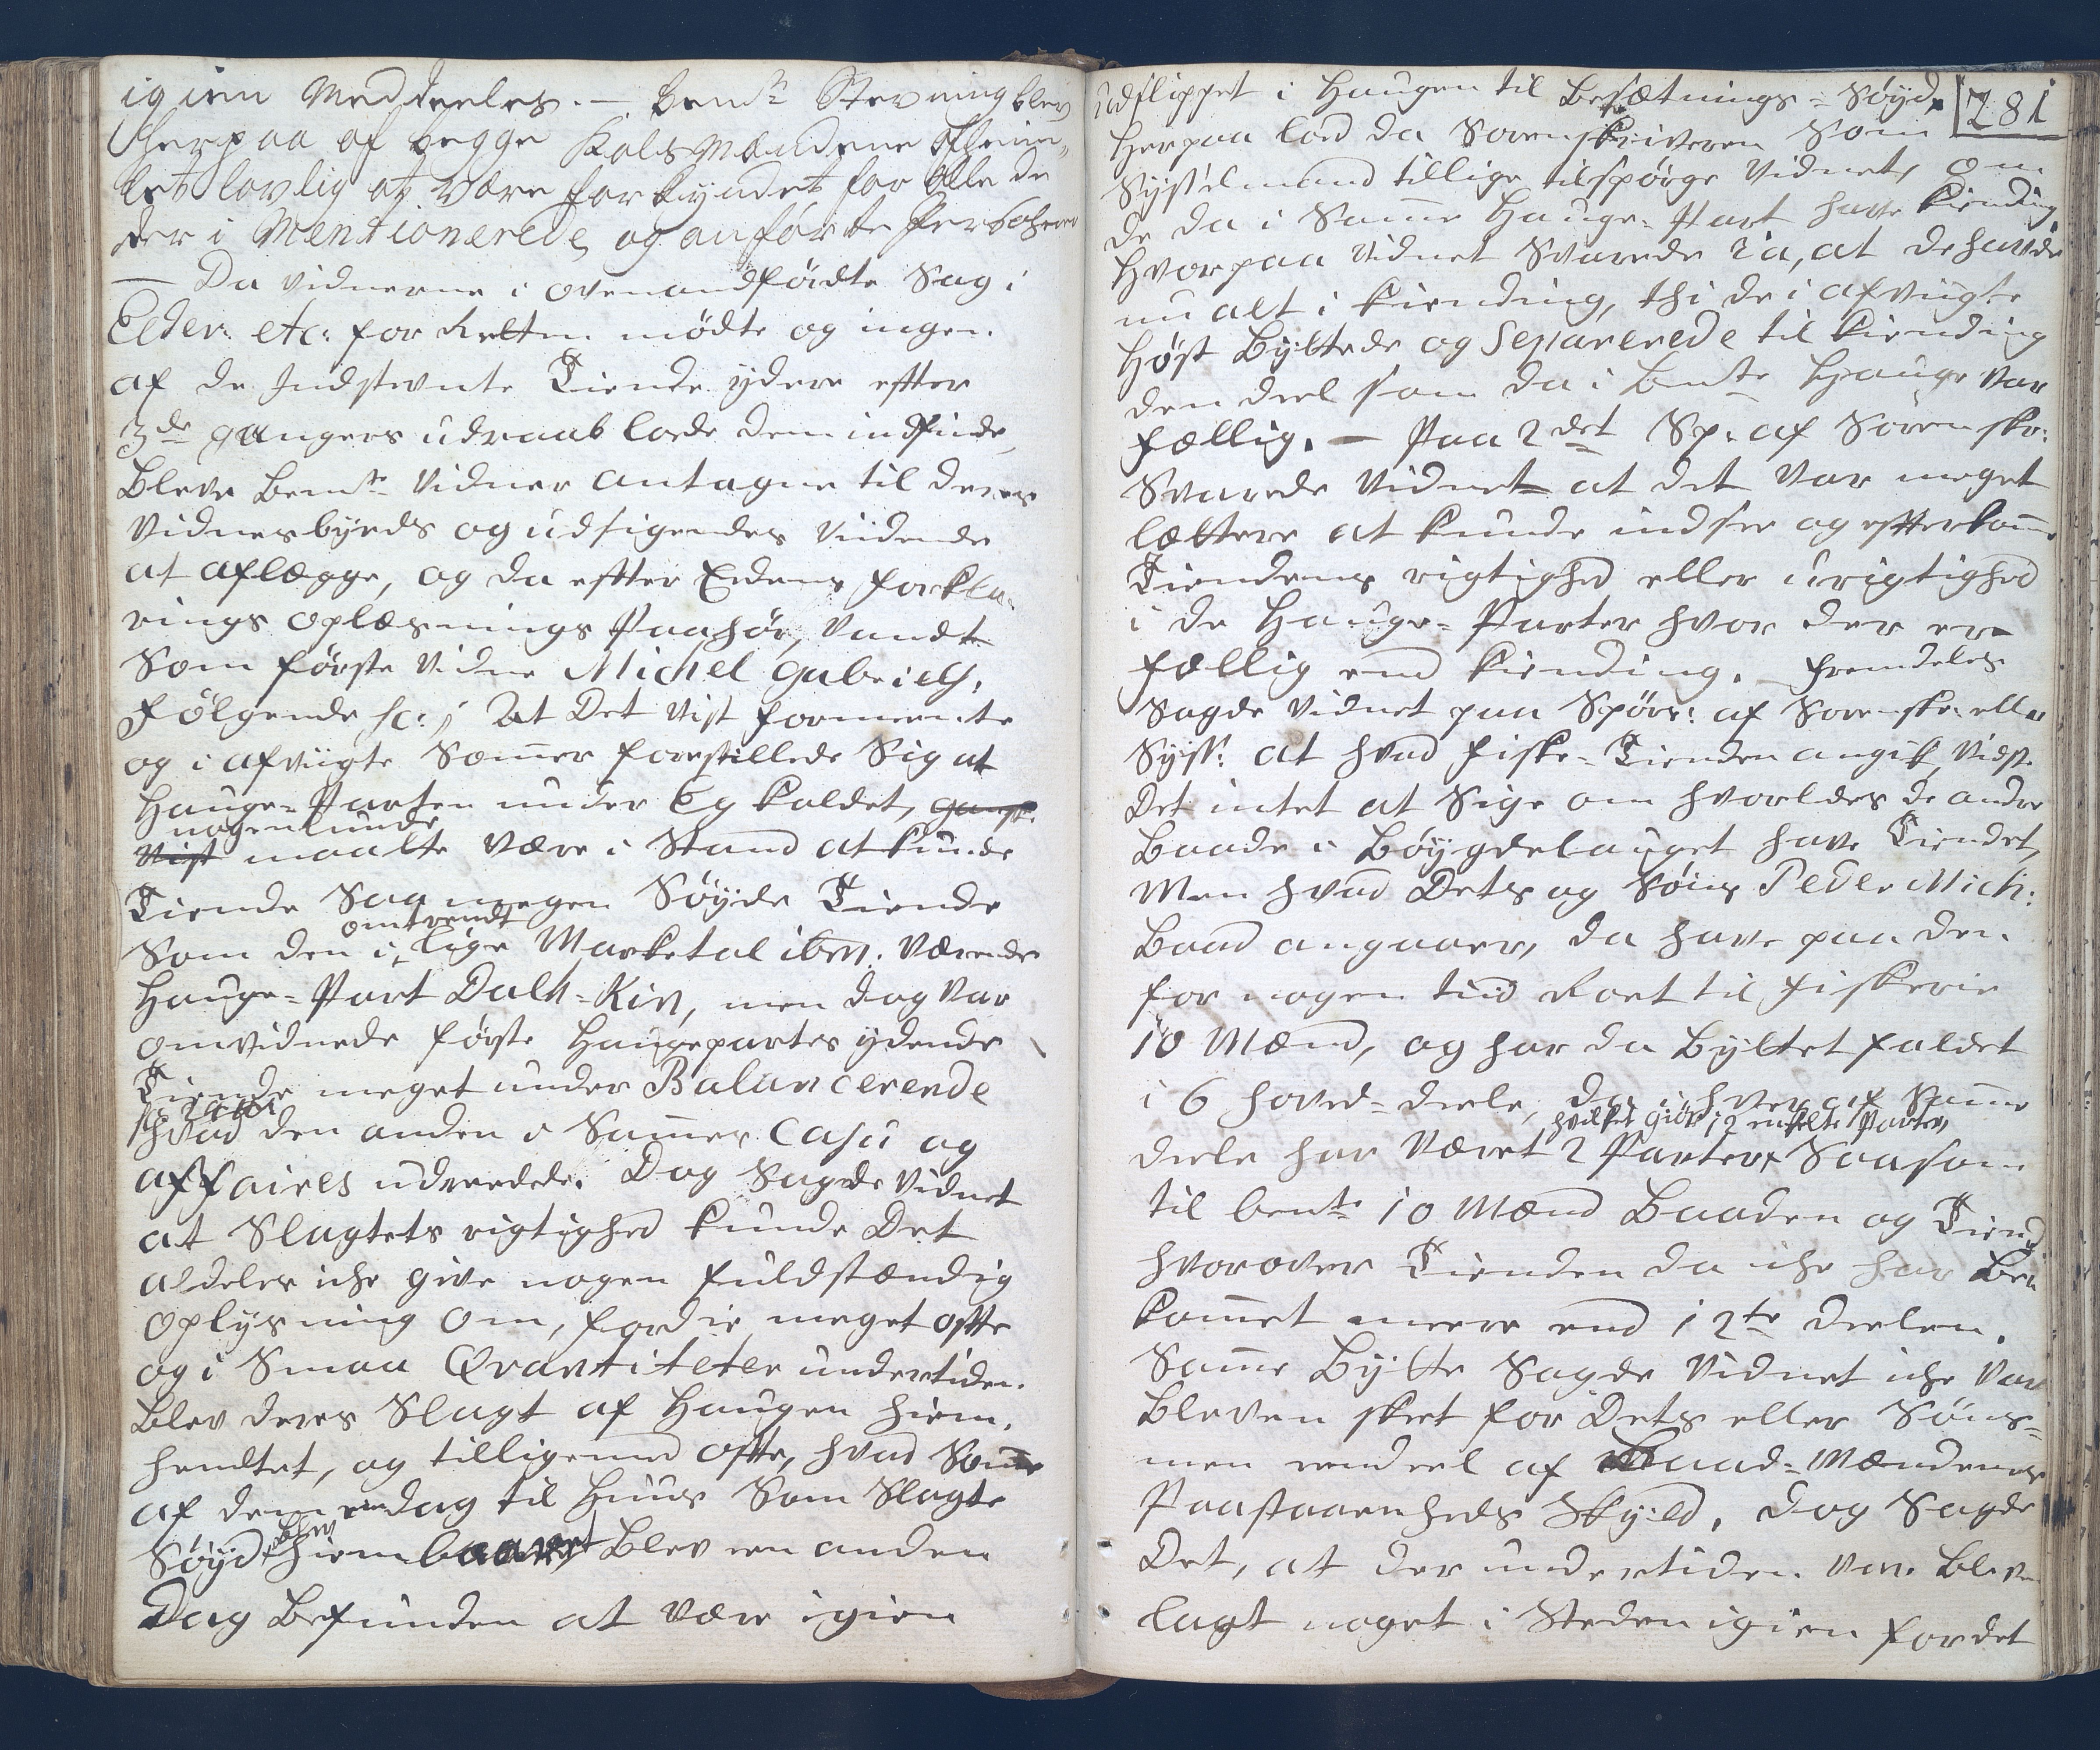 igien Meddeeles. — bemte Stevning blev
herpaa af begge KalsMændene afhiem¬
let lovlig at være forkyndet for alle de
der i Mentionerede og anførte Persohner
— Da vidnerne i ovenandførdte Sag i
Elder: etc: for Retten mødte og ingen
af de Indstevnte Tiende ydere efter
3de gangers udraab lode dem indfinde,
bleve bemte vidner antagne til deres
vidnesbyrds og udsigendes Viidende
at aflægge, og da efter Edens forkla¬
rings oplæsnings Paahør, vandt
Som første vidne Michel Gabriels:
følgende sc: / At Det vist formeente
og i afvigte Sommer forestillede Sig at
Hauge-Parten under Eg kaldet, gansk
nogenlunde
vist maatte være i Stand at kunde
Tiende Saa megen Søyde Tiende
omtrendt
Som den i lige Marketal ibm: værende
Hauge-Part Dalh-Kin, men dog var
omvidnede første Haugeparts ydende
Tiende meget under Balancerende
hvad den anden i Samme Casu og
affaires udreedede. Dog Sagde vidnet
at Slagtets rigtighed kunde Det
aldeles iche give nogen fuldstændig
oplysning om, fordie meget ofte
og i Smaa Qvantiteter undertiden
blev deres Slagt af Haugen hiem¬
hendtet, og tilligemed ofte, hvad Somme
af dem een dag til Huus Som Slagte
blev
Søyd hiembaaret blev een anden
Dag befunden at være igien
281
udslippet i Haugen til Besætnings-Søyd.
Herpaa lod da Sorenskriveren Som
Sysselmand tillige tilspørge vidnet, om
de da i Samme Hauge-Part have kiending,
hvorpaa vidnet Svarede Ja, at de havde
nu alt i kiending, thi de i afvigte
Høst byttede og Separerede til kiending
den deel som da i bemte Hauge var
fællig. — Paa 2det Sp: af Sorenskr:
Svarede vidnet at det var meget
lættere at kunde indsee og efterkomme
Tiendens rigtighed eller urigtighed
i de Hauge-Parter hvor der er
fællig end kiending. Fremdeeles
Sagde vidnet paa Spørs: af Sorenskr: eller
Syss: at hvad fiske-Tienden angik, vidste
Det intet at Sige om hvorledes de andre
Baade i Bøygdelauget have Tiendet,
Men hvad Dets og Søns Peder Mich:
Baad angaaer, da have paa den
for nogen tiid Roet til fiskerie
10 Mænd, og har da byttet faldet
i 6 hoved-deele, da i hver af Samme
hvilket giør 12 enkelte Parter,
deele har været 2 Parter, Saasom
til bemte 10 Mænd Baaden og Tiend,
hvorover Tienden da iche har be¬
kommet meere end 12te deelen.
Samme Bytte Sagde vidnet iche var
bleven skeet for Dets eller Søns-
men eendeel af Baad-Mændenes
Paastaaenheds Skyld. Dog Sagde
Det, at der undertiden var bleven
lagt noget i Steden igien for det